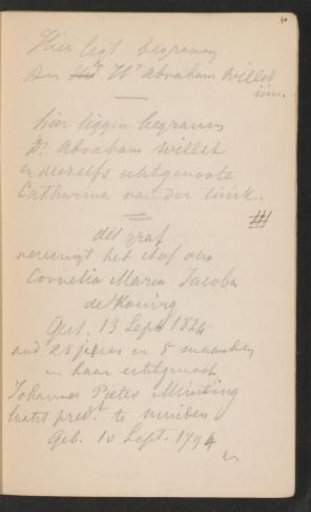 Hier ligt begraven
Den Wr Abraham Willet
iun.
hier liggen begraven
Dr Abraham Willet
en deszelfs echtgenoote
Catharina van der
dit graf
vereenigt het stof van
Cornelia Maria Jacoba
de Koning
Geb. 13 Sept 1824
oud 25 jaren en 5 maanden
en haar echtgenoot
Johannes Pieter
laatst predt te Muiden
Geb. 10 Sept. 1794